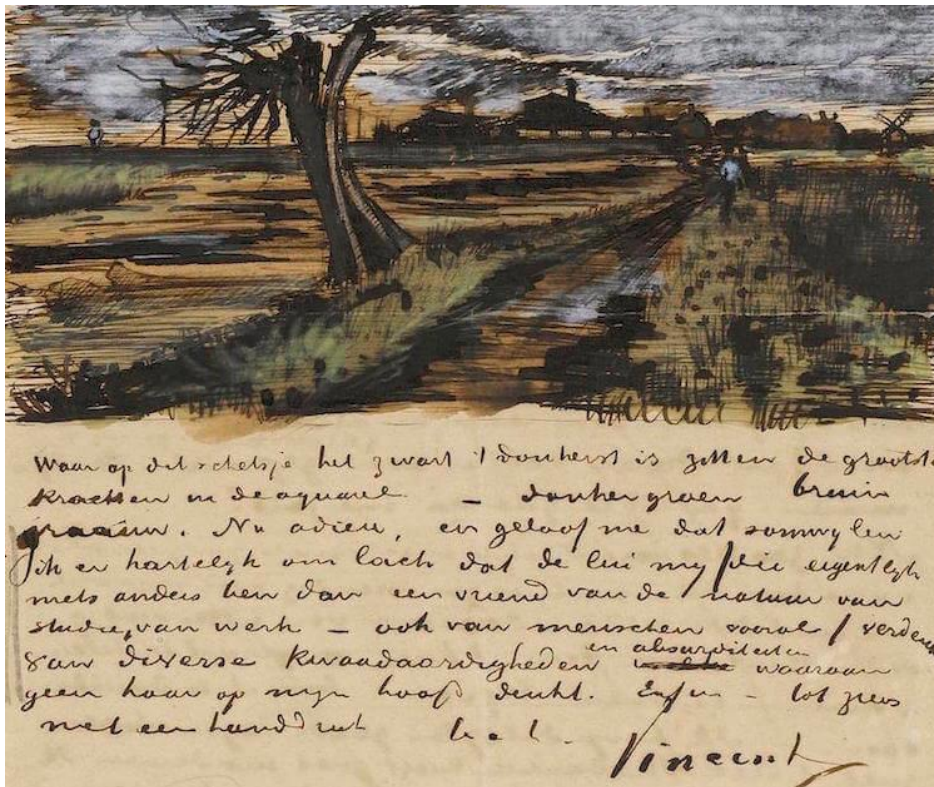 Waar op dit schetsje het zwart 't donkerst is zitten de grootste
krachten in de aquarel – donkergroen bruin
graauw. Nu adieu, en geloof me dat somwylen
ik er hartelyk om lach dat de lui my /die eigentlyk
niets anders ben dan een vriend van de natuur van
studie, van werk – ook van menschen vooral/ verdenk
van diverse kwaadaardigheden en absurditeiten waaraan
geen haar op myn hoofd denkt. Enfin – tot ziens
met een handdruk
Vincent